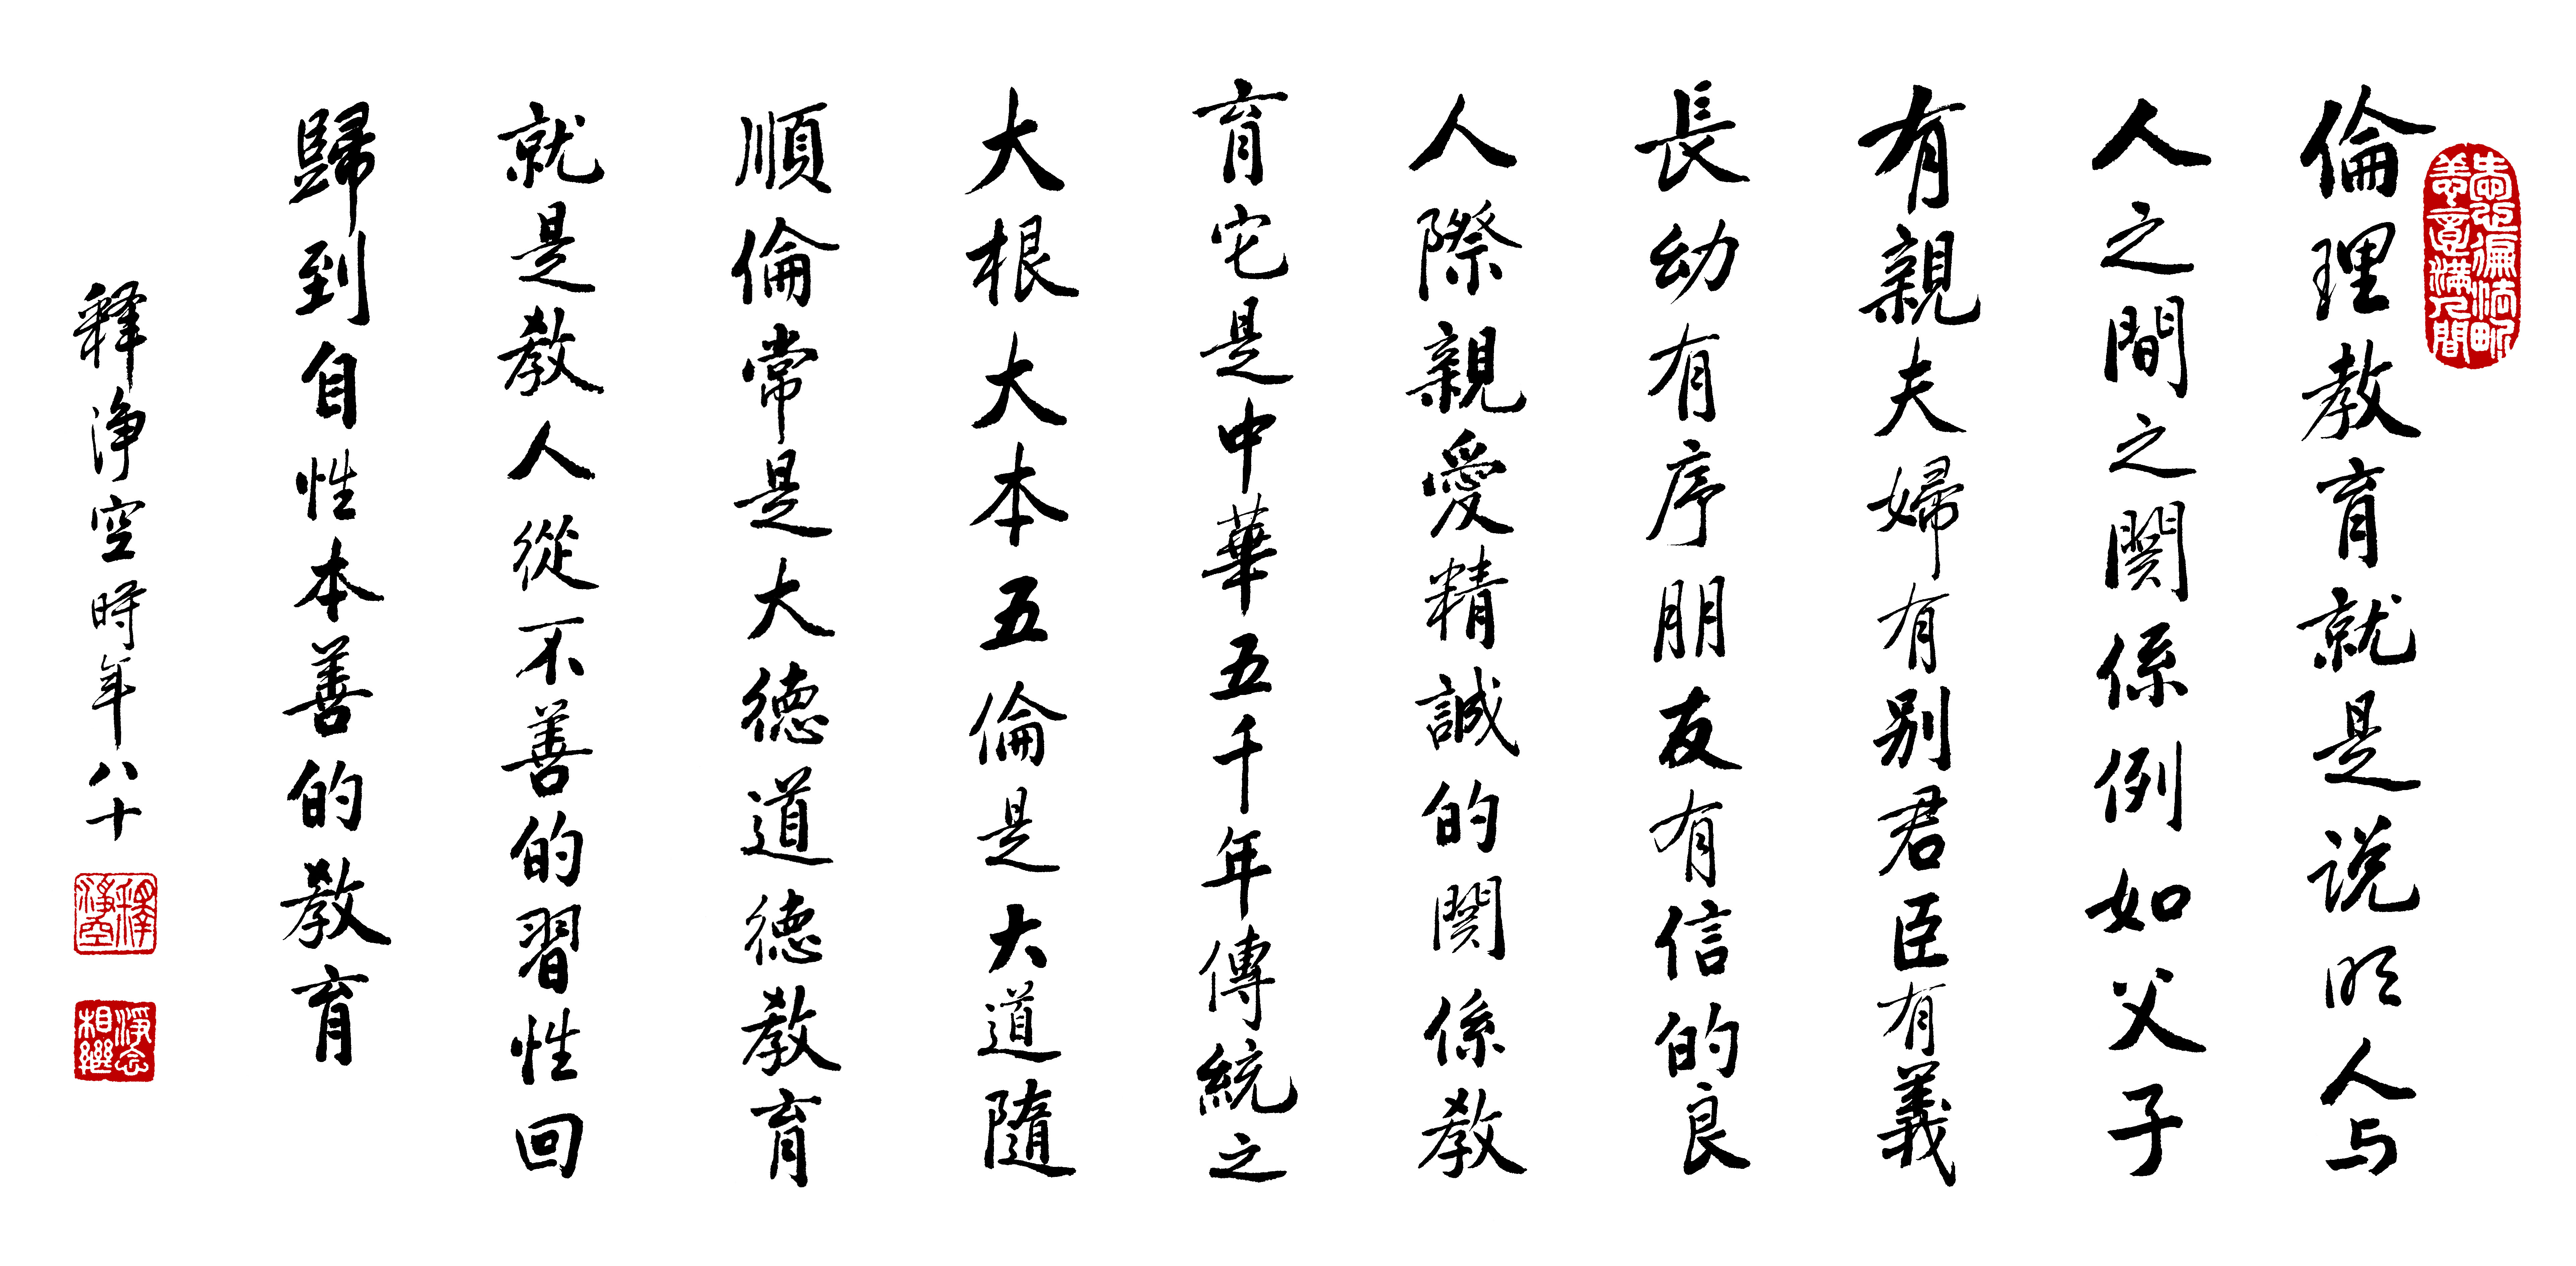 倫理教育就是说明人与
人之間之関係例如父子
有親夫婦有别君臣有義
長幼有序朋友有信的良
人際親愛精誠的関係教
育它是中華五千年傳統之
大根大本五倫是大道隨
順倫常是大德道德教育
就是教人從不善的習性回
歸到自性本善的教育
释淨空時年八十
釋淨空
淨念相繼